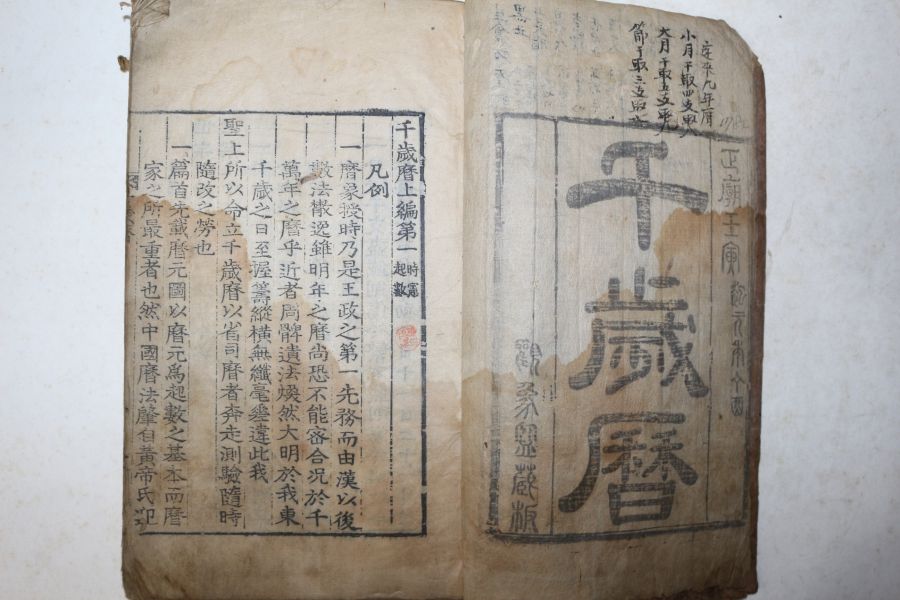 定來九年厝
小月干取四支取八
大月干取五支取九
節干取三支取
正廟壬寅
千歲曆
觀象監藏板
千歲曆上編第一 時憲起數
凡例
一曆象授時乃是王政之第一先務而由漢以後
數法世逸雖明年之曆尚恐不能密合况於千
萬年之曆乎近者周髀遺法煥然大明於我東
千歲之日至握籌縱橫無纖毫差違此我
聖上所以命立千歲曆以省司曆者奔走測驗隨時
隨改之勞也
一篇首先載曆元圖以曆元爲起數之基本而曆
家之所最重者也然中國曆法肇自黃帝氏迎